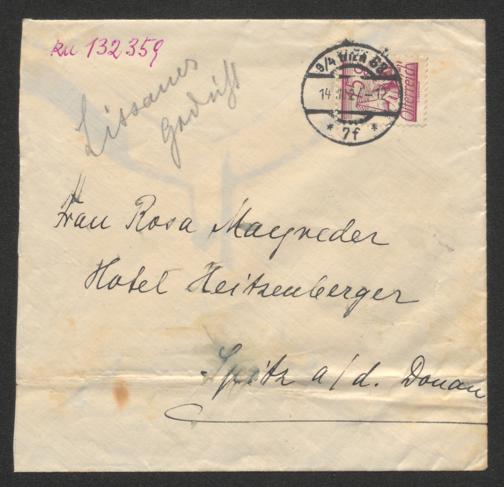 zu 132359
Lissauer
Gedicht
9/4 WIEN 68
14.
-12
* 7f *
Österreich
Frau Rosa Mayreder
Hotel Heitzenberger
Spitz a/d. Donau